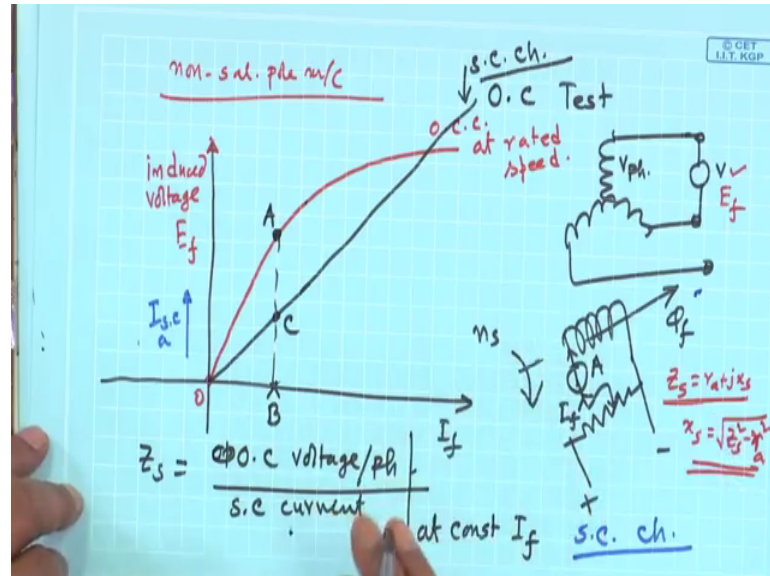 © CET
I.I.T. KGP
non-sal. pole m/c
s.c. ch.
O.C Test
O.C.C.
at rated
speed.
induced
voltage
E_f
I_s.c
a
A
C
B
O
I_f
V_ph.
V ✓
E_f
n_s
A
I_f
Φ_f
+
-
Z_s = r_a + j x_s
x_s = √Z_s² - r_a²
Z_s = O.C voltage/ph
s.c current
at const I_f
s.c. ch.